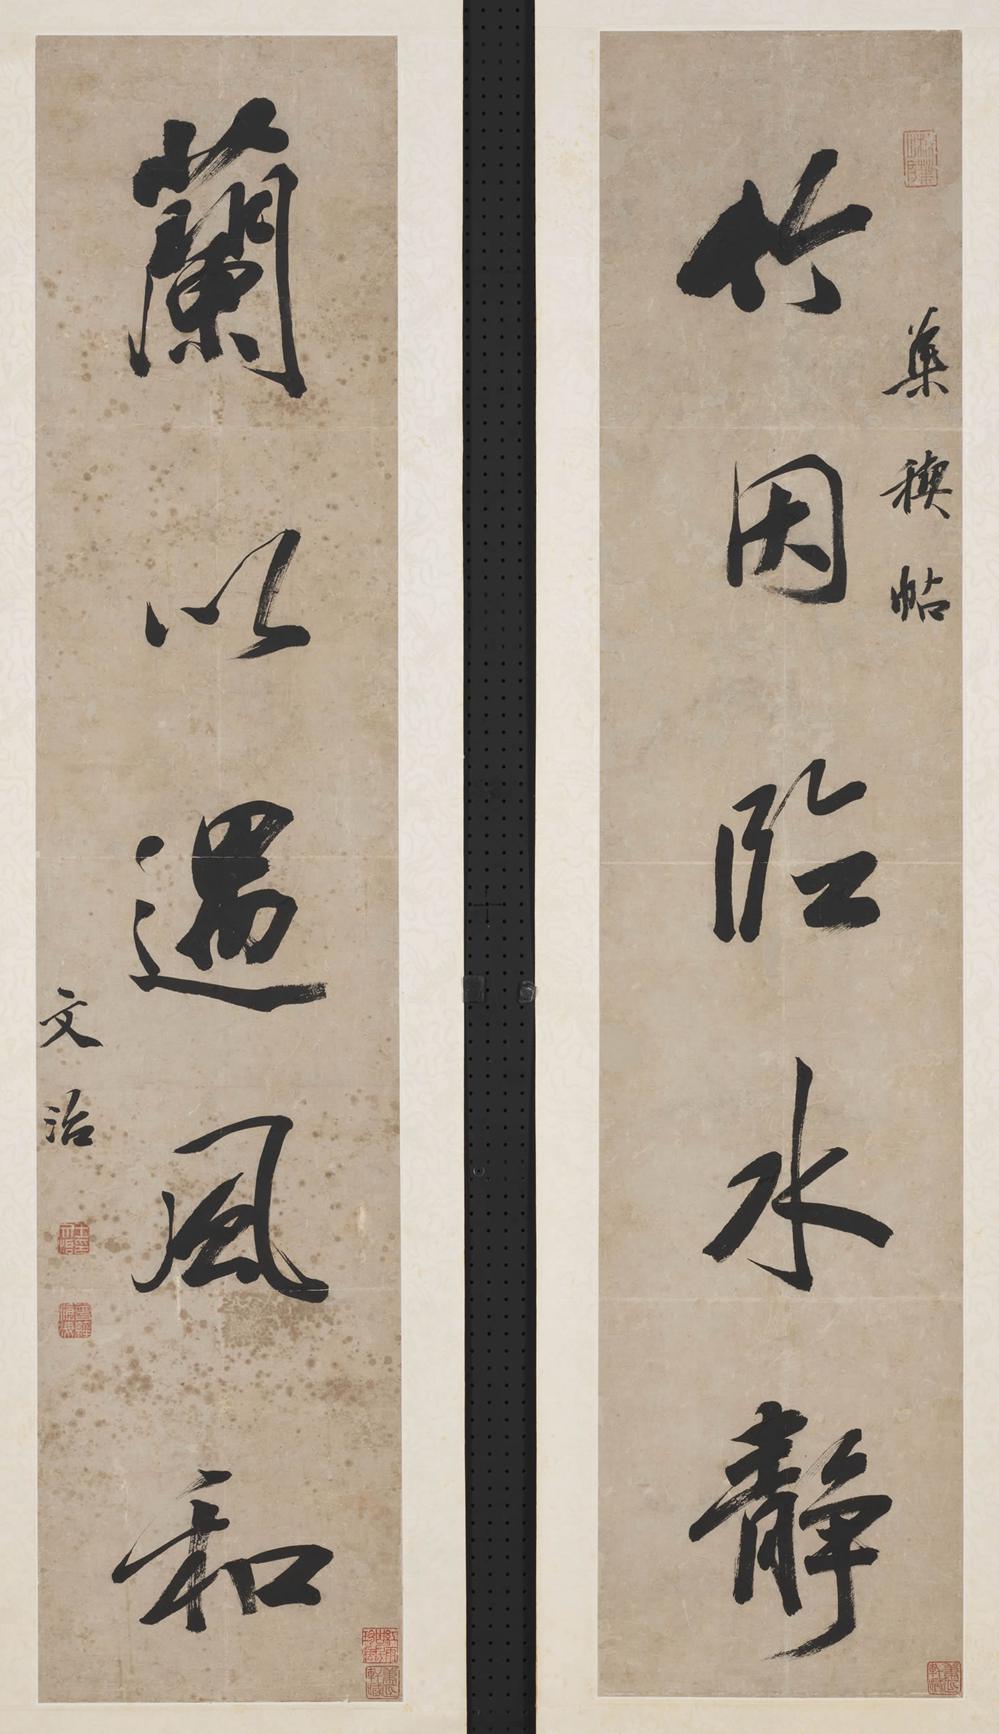 集禊帖
竹因臨水靜
蘭以遇風和
文治